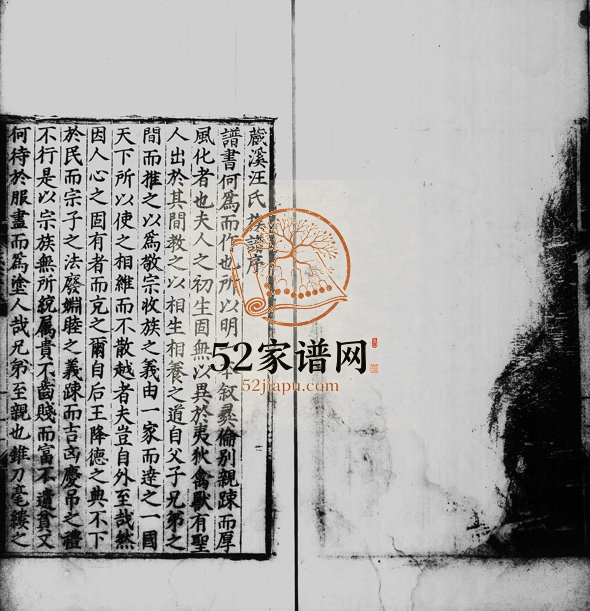 蕆溪汪氏族譜序
譜書何爲而作也所以明 本叙彛倫別親踈而厚
風化者也夫人之初生固無以異於夷狄禽獸有聖
人出於其間教之以相生相養之道自父子兄弟之
間而推之以爲敬宗收族之義由一家而達之一國
天下所以使之相維而不散越者夫豈自外至哉然
因人心之固有者而克之爾自后王降德之典不下
於民而宗子之法廢婣睦之義踈而吉凶慶吊之禮
不行是以宗族無所統屬貴不齒賤而富不遺貧又
何待於服盡而爲塗人哉兄弟至親也錐刀毫縷之
52家谱网
52jiapu.com